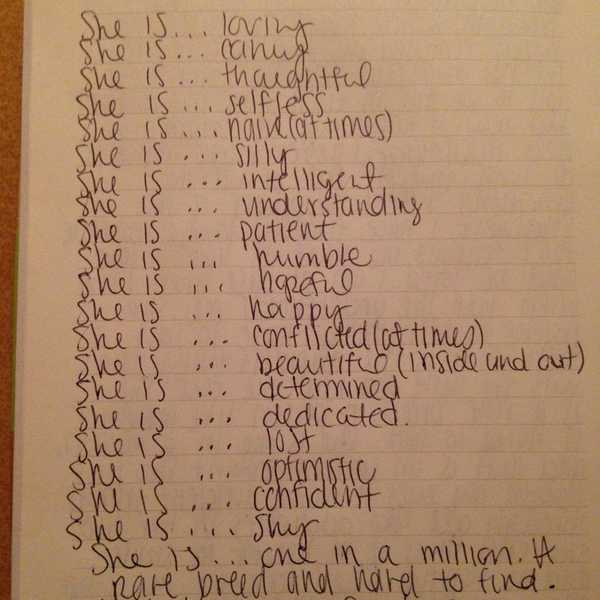 She is... loving
She is... caring
She is... thoughtful
She is... selfless
She is... naive (at times)
She is ... silly
She is ... intelligent
She is ... understanding
She is ... patient
She is ... humble
She is ... hopeful
She is ... happy
She is ... conflicted (at times)
She is ... beautiful (inside and out)
She is ... determined
She is ... dedicated.
She is ... lost
She is ... optimistic
She is ... confident
She is ... shy
She is ... one in a million. A
rare breed and hard to find.